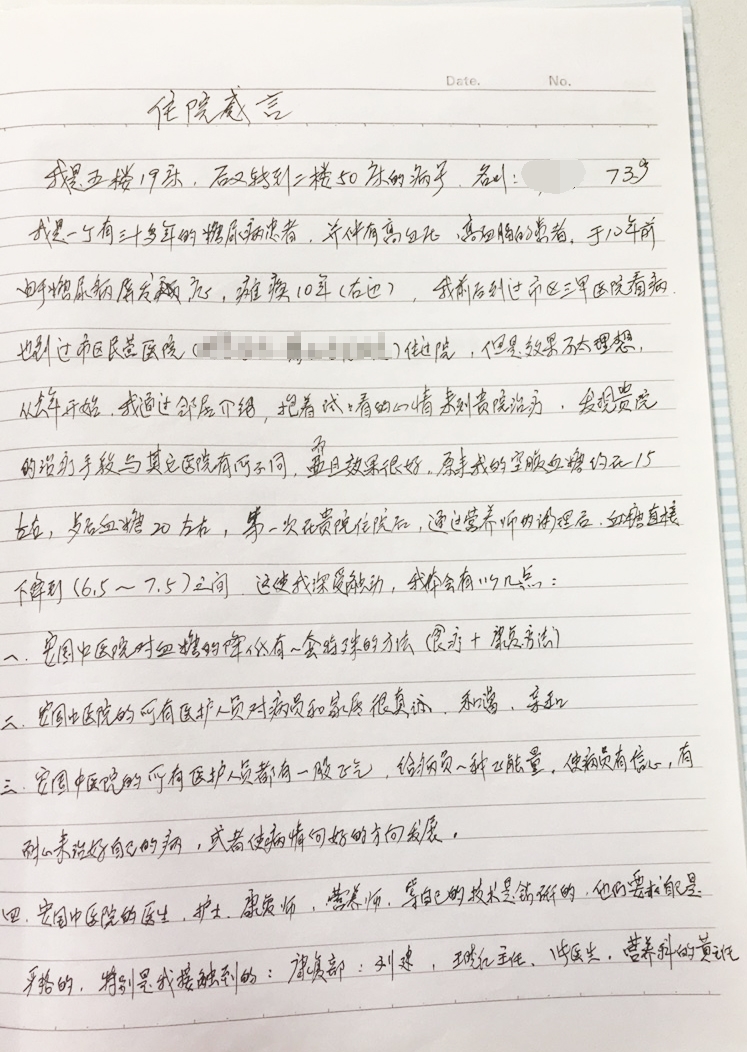 Date. No.
住院感言
我是五楼19床，后又转到二楼50床的病号，名叫： 73岁
我是一个有三十多年的糖尿病患者，并伴有高血压、高血脂的患者。于10年前
由于糖尿病 ，瘫痪10年（右边），我前后到过市区三甲医院看病
也到过市区民营医院（ ）住过院，但是效果不太理想，
从去年开始，我通过邻居介绍，抱着试试看的心情来到贵院治疗，发现贵院
的治疗手段与其它医院有所不同，而且效果很好，原来我的空腹血糖约在15
左右，后血糖20左右，第一次在贵院住院后，通过营养师的调理后，血糖直接
下降到（6.5～7.5）之间 这使我深受触动，我体会有以下几点：
一、安国中医院对血糖的降低有一套特殊的方法（食疗+康复方法）
二、安国中医院的所有医护人员对病员和家属很真诚、和蔼、亲和
三、安国中医院的所有医护人员都有一股正气，给病员一种正能量，使病员有信心，有
耐心来治好自己的病，或者使病情向好的方向发展。
四、安国中医院的医生、护士、康复师、营养师，等自己的技术是的，他们要求自己是
严格的，特别是我接触到的：康复部：刘建、主任、医生，营养科的黄主任